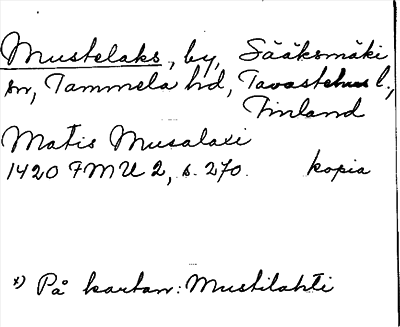 Mustelaks, by, Sääksmäki
sn, Tammela hd, Tavastehus l.,
Finland
Matis Musalaxi
1420 FMU 2, s. 270. kopia
*) På kartan: Mustilahti